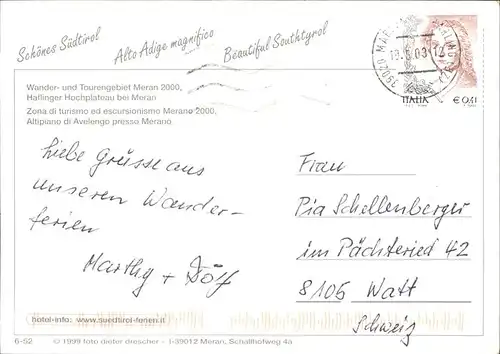 Schönes Südtirol
Alto Adige magnifico
Beautiful Southtyrol
Wander- und Tourengebiet Meran 2000,
Haflinger Hochplateau bei Meran
Zona di turismo ed escursionismo Merano 2000,
Altipiano di Avelengo presso Merano
ITALIA €0,41
Liebe Grüsse aus
unseren Wander-
ferien
Marthy + Dölf
Frau
Pia Schellenberger
im Pächterried 42
8105 Watt
Schweiz
hotel-info: www.suedtirol-ferien.it
6-52 © 1999 foto dieter drescher - I-39012 Meran, Schallhofweg 4a